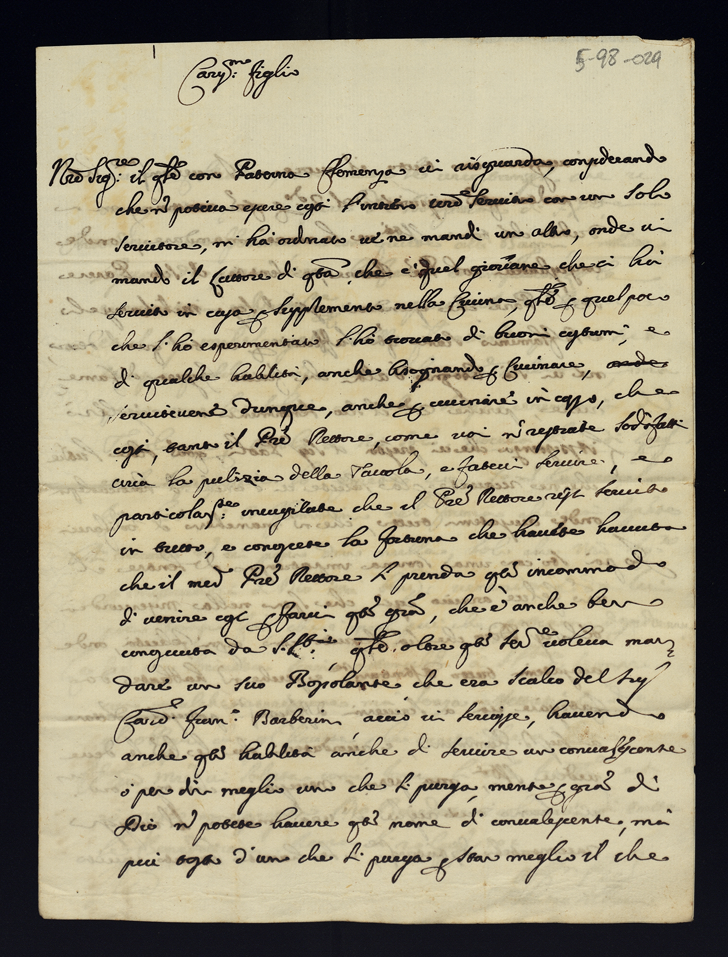 5-98-029
Cariss.mo figlio
N.ro Sig.re il q.le con Paterna Clemenza vi risguarda, considerando
che n' poteva essere costì l'intiero ser.o servito con un solo
servitore, m'ha ordinato ve ne mandi un altro, onde vi
mando il lattore di q.ta, che è quel giovane che ci ha
servito in casa p supplemento nella Cucina, q.le p quel poco
che l'hò esperimentato l'hò trovato di buoni costumi, e
di qualche habilità, anche bisognando p Cucinare, onde
servitevene dunque, anche p cucinare in caso, che
costì, tanto il P're Rettore, come voi n' restiate sodisfatti
circa la pulizia della Tavola, e fatevi servire, e
particolarm.te invigilate che il P're Rettore resti servito
in tutto, e conoscete la fortuna che havete havuta
che il med.o P're Rettore si prenda q.to incommodo
di venire costì p farvi q.ta gra, che è anche ben
conosciuta da S. S.tà q.le oltre q.to ser.e voleva man=
dare un suo Bussolante che era scalco del Sig.r
Card.e Fran.co Barberini acciò vi servisse, havendo
anche q.to habilità anche di servire un convalescente
ò per dir meglio uno che si purga, mentre p gra di
Dio n' potete havere q.to nome di convalescente, mà
più tosto d'un che si purga p star meglio il che